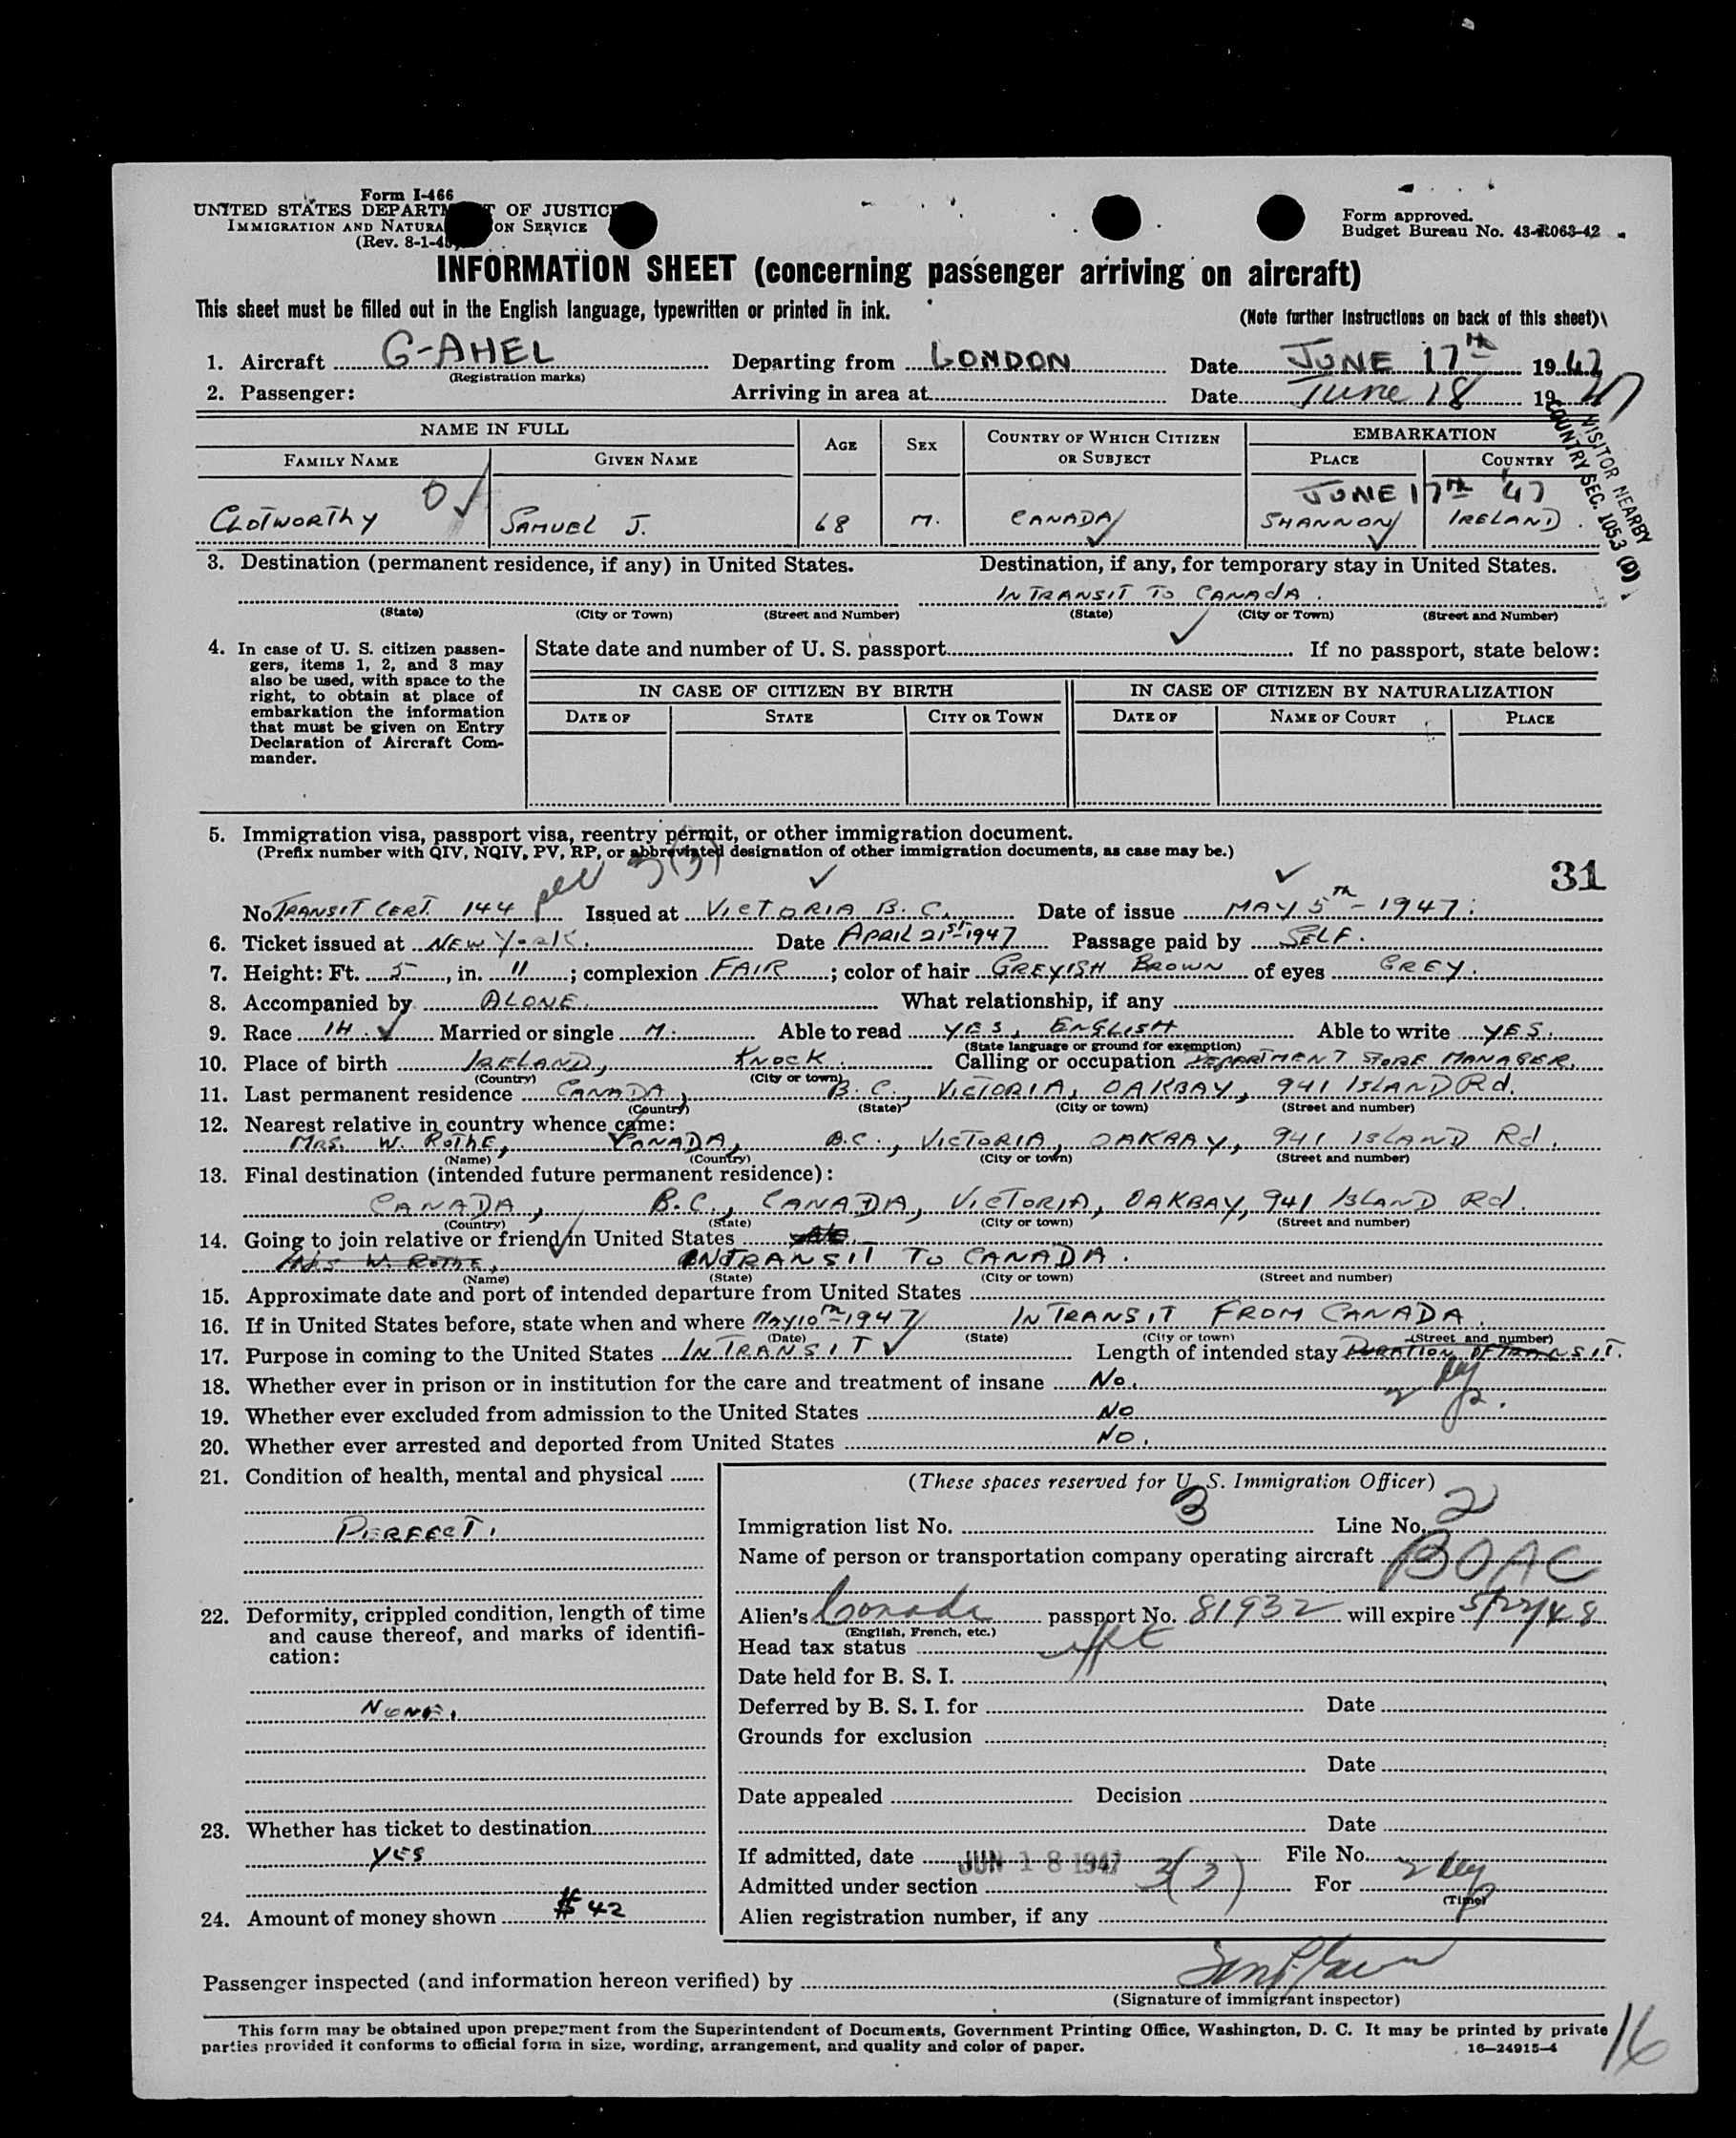 Form I-466
UNITED STATES DEPARTM T OF JUSTICE
IMMIGRATION AND NATURA ON SERVICE
(Rev. 8-1-45)
Form approved.
Budget Bureau No. 43-R063-42
INFORMATION SHEET (concerning passenger arriving on aircraft)
This sheet must be filled out in the English language, typewritten or printed in ink.
(Note further instructions on back of this sheet)
1. Aircraft G-AHEL Departing from LONDON Date JUNE 17th 1947
(Registration marks)
2. Passenger: Arriving in area at Date June 18 1947
VISITOR NEARBY
COUNTRY SEC. 1053 (D)
NAME IN FULL AGE SEX COUNTRY OF WHICH CITIZEN OR SUBJECT EMBARKATION
FAMILY NAME GIVEN NAME PLACE COUNTRY
JUNE 17th 47
CLOTWORTHY SAMUEL J. 68 M. CANADA SHANNON IRELAND.
3. Destination (permanent residence, if any) in United States. Destination, if any, for temporary stay in United States.
IN TRANSIT TO CANADA.
(State) (City or Town) (Street and Number) (State) (City or Town) (Street and Number)
4. In case of U. S. citizen passen-
gers, items 1, 2, and 3 may
also be used, with space to the
right, to obtain at place of
embarkation the information
that must be given on Entry
Declaration of Aircraft Com-
mander.
State date and number of U. S. passport If no passport, state below:
IN CASE OF CITIZEN BY BIRTH IN CASE OF CITIZEN BY NATURALIZATION
DATE OF STATE CITY OR TOWN DATE OF NAME OF COURT PLACE
5. Immigration visa, passport visa, reentry permit, or other immigration document.
(Prefix number with QIV, NQIV, PV, RP, or abbreviated designation of other immigration documents, as case may be.)
3(3)
31
No. TRANSIT CERT. 144 Issued at VICTORIA B.C. Date of issue MAY 5th - 1947.
6. Ticket issued at NEW York. Date APRIL 21st-1947 Passage paid by SELF.
7. Height: Ft. 5, in. 11; complexion FAIR; color of hair GREYISH BROWN of eyes GREY.
8. Accompanied by ALONE. What relationship, if any
9. Race IH. Married or single M. Able to read YES, ENGLISH Able to write YES.
(State language or ground for exemption)
10. Place of birth IRELAND, KNOCK. Calling or occupation DEPARTMENT STORE MANAGER.
(Country) (City or town)
11. Last permanent residence CANADA, B.C., VICTORIA, OAKBAY, 941 ISLAND Rd.
(Country) (State) (City or town) (Street and number)
12. Nearest relative in country whence came:
MRS. W. ROTHE, CANADA, B.C., VICTORIA, OAKBAY, 941 ISLAND Rd.
(Name) (Country) (City or town) (Street and number)
13. Final destination (intended future permanent residence):
CANADA, B.C., CANADA, VICTORIA, OAKBAY, 941 ISLAND Rd.
(Country) (State) (City or town) (Street and number)
14. Going to join relative or friend in United States
MRS W. ROTHE, INTRANSIT TO CANADA.
(Name) (State) (City or town) (Street and number)
15. Approximate date and port of intended departure from United States
16. If in United States before, state when and where MAY 10th-1947 IN TRANSIT FROM CANADA.
(Date) (State) (City or town) (Street and number)
17. Purpose in coming to the United States IN TRANSIT Length of intended stay DURATION OF TRANSIT.
18. Whether ever in prison or in institution for the care and treatment of insane No.
19. Whether ever excluded from admission to the United States NO
20. Whether ever arrested and deported from United States NO.
21. Condition of health, mental and physical
PERFECT.
22. Deformity, crippled condition, length of time
and cause thereof, and marks of identifi-
cation:
NONE.
23. Whether has ticket to destination
YES
24. Amount of money shown $42
(These spaces reserved for U. S. Immigration Officer)
Immigration list No. 3 Line No. 2
Name of person or transportation company operating aircraft BOAC
Alien's Canada passport No. 81932 will expire 5/22/48
(English, French, etc.)
Head tax status
Date held for B. S. I.
Deferred by B. S. I. for Date
Grounds for exclusion
Date
Date appealed Decision
Date
If admitted, date JUN 18 1947 File No.
Admitted under section 3(3) For 2
(Time)
Alien registration number, if any
Passenger inspected (and information hereon verified) by
(Signature of immigrant inspector)
This form may be obtained upon prepayment from the Superintendent of Documents, Government Printing Office, Washington, D. C. It may be printed by private
parties provided it conforms to official form in size, wording, arrangement, and quality and color of paper.
16—24915-4
16